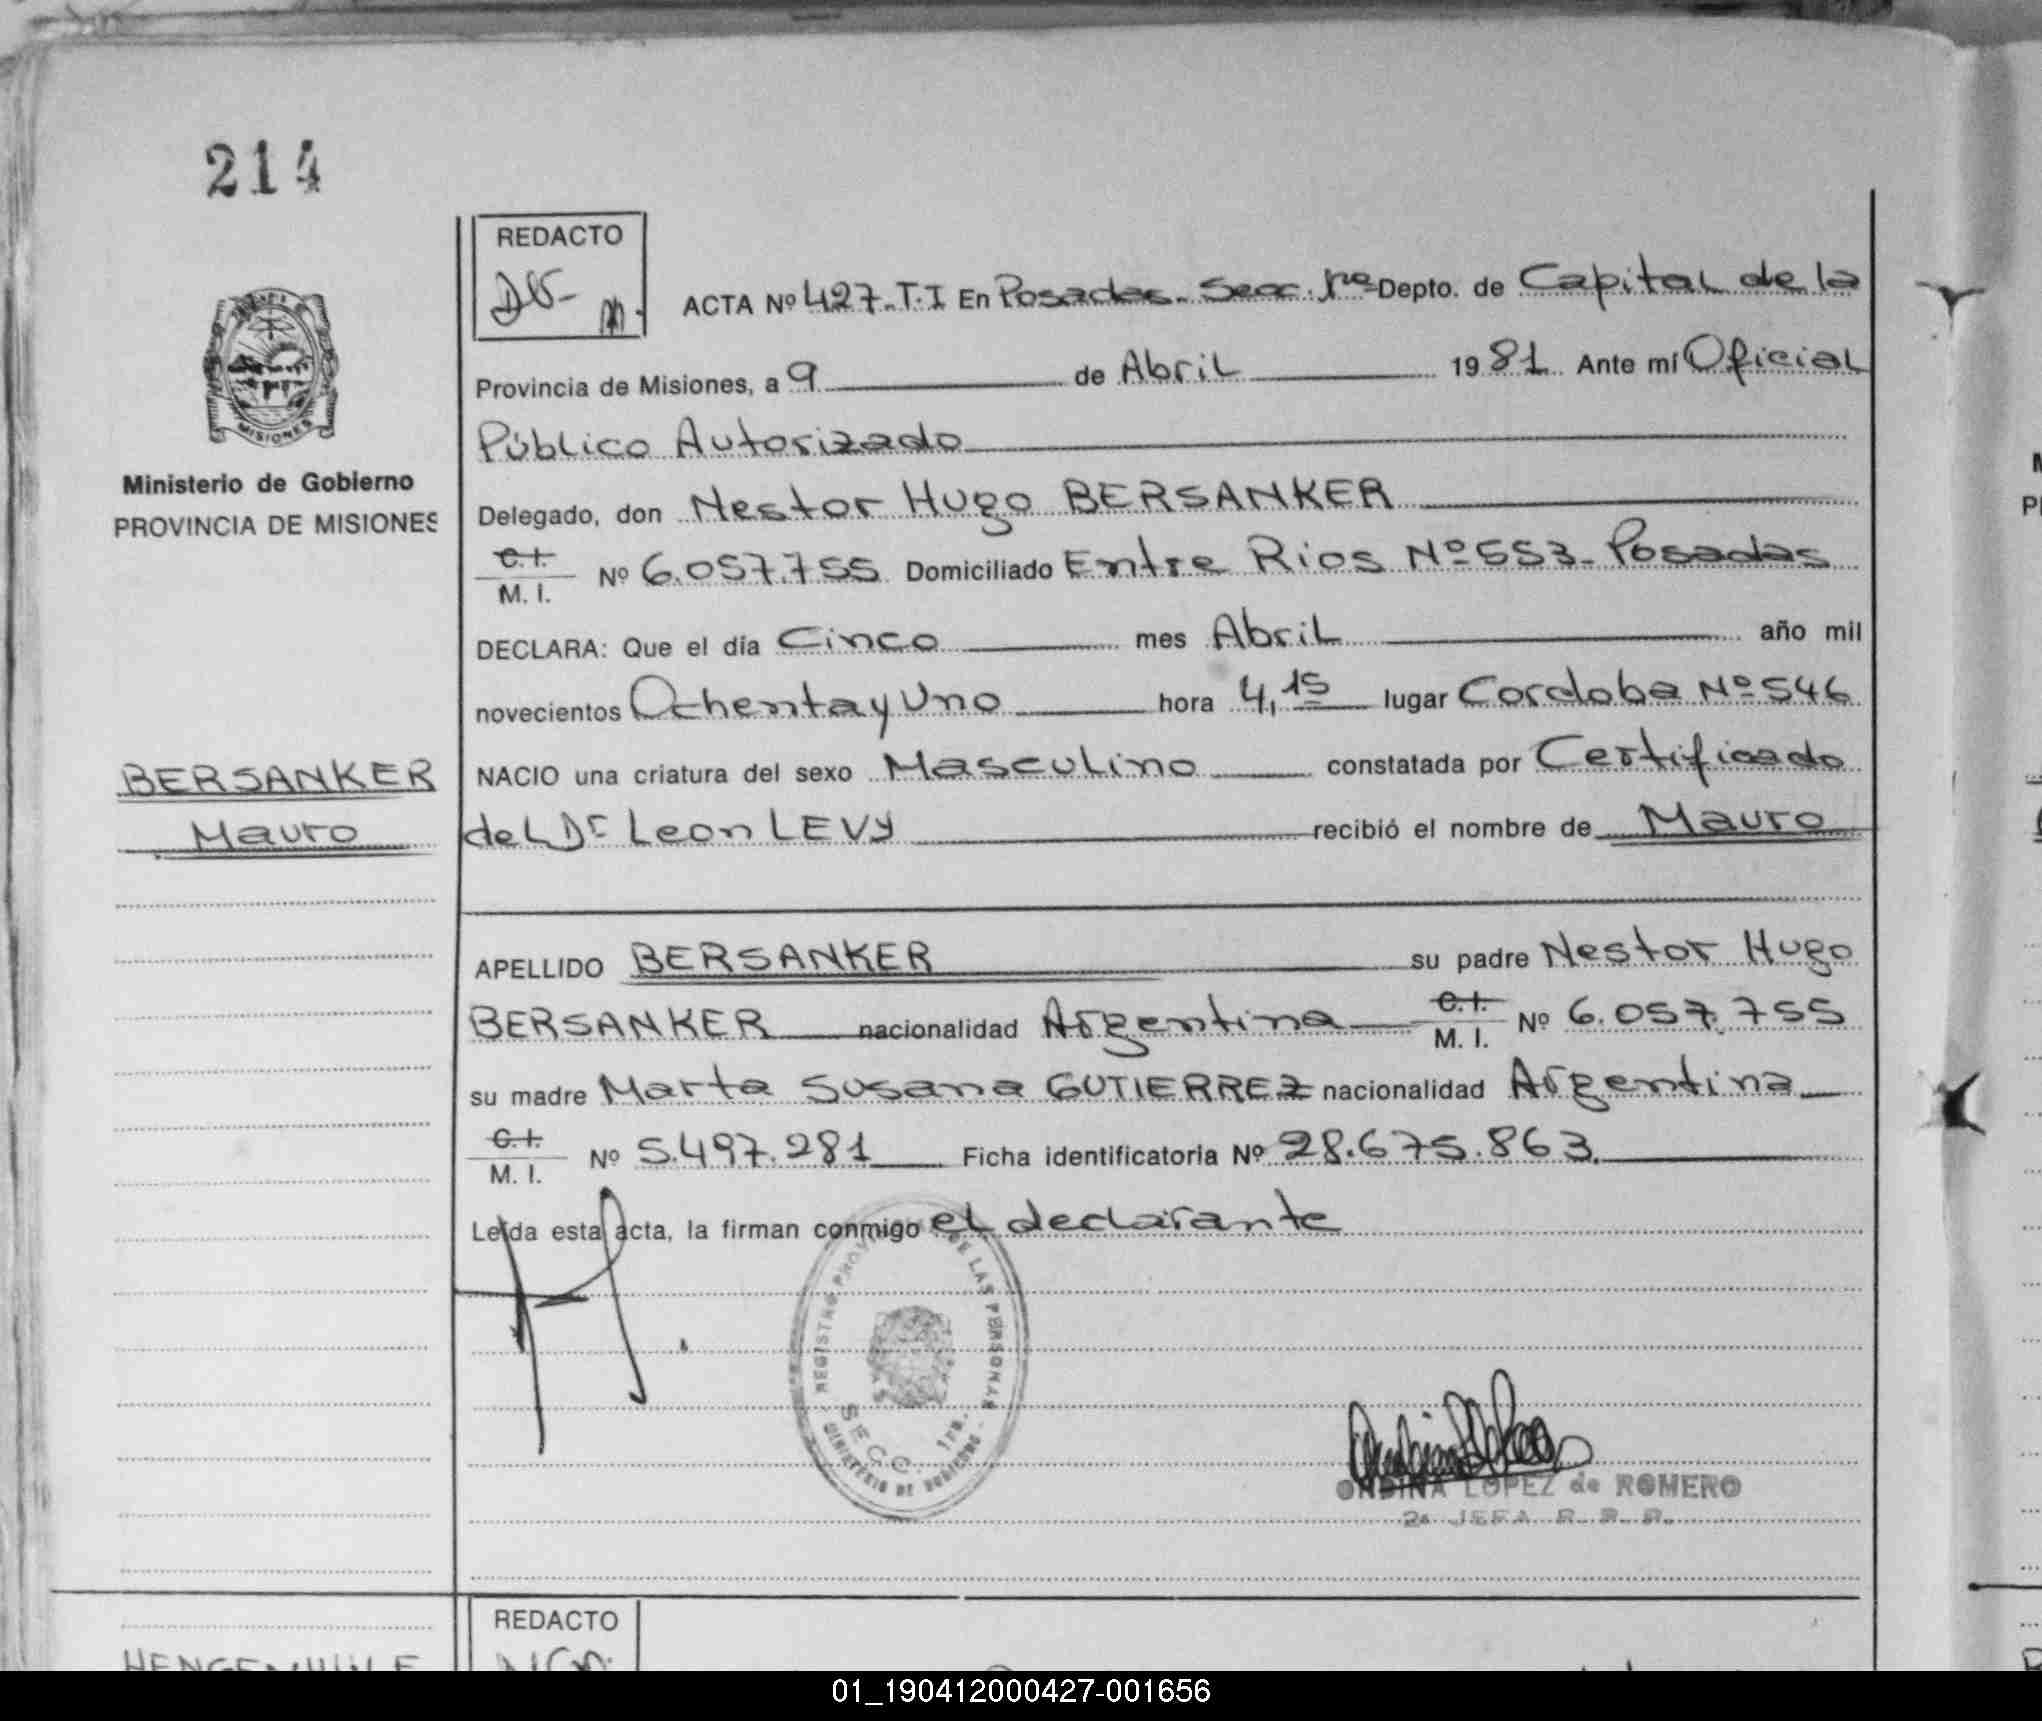 214
REDACTO
ACTA Nº 427-T.I En Posadas. Secc. 1ra Depto. de Capital de la
Provincia de Misiones, a 9 de Abril 1981 Ante mí Oficial
Público Autorizado
MISIONES
Ministerio de Gobierno
PROVINCIA DE MISIONES
Delegado, don Nestor Hugo BERSANKER
C.I.
M. I. Nº 6.057.755 Domiciliado Entre Rios Nº 553- Posadas
DECLARA: Que el día Cinco mes Abril año mil
novecientos Ochenta y Uno hora 4,15 lugar Cordoba Nº 546
BERSANKER
Mauro
NACIO una criatura del sexo Masculino constatada por Certificado
del Dr Leon LEVY recibió el nombre de Mauro
APELLIDO BERSANKER su padre Nestor Hugo
BERSANKER nacionalidad Argentina C.I. M. I. Nº 6.057.755
su madre Marta Susana GUTIERREZ nacionalidad Argentina
C.I.
M. I. Nº 5.497.281 Ficha identificatoria Nº 28.675.863.
Leída esta acta, la firman conmigo el declarante
REGISTRO PROV DE LAS PERSONAS
SECC. 1ra.
MINISTERIO DE GOBIERNO
ONDINA LOPEZ de ROMERO
2a JEFA R. P. P.
REDACTO
01_190412000427-001656